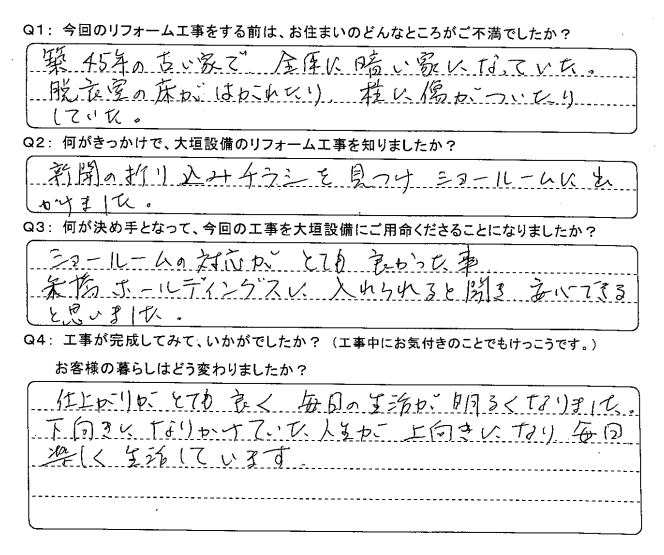 Q1: 今回のリフォーム工事をする前は、お住まいのどんなところがご不満でしたか?
築45年の古い家で 全体に暗い家になっていた。
脱衣室の床がはがれたり、柱に傷がついたり
していた。
Q2: 何がきっかけで、大垣設備のリフォーム工事を知りましたか?
新聞の折り込みチラシを見つけ ショールームに出
かけました。
Q3: 何が決め手となって、今回の工事を大垣設備にご用命くださることになりましたか?
ショールームの対応が とても良かった事
ホールディングスに入れられると聞き 安心できる
と思いました。
Q4: 工事が完成してみて、いかがでしたか? (工事中にお気付きのことでもけっこうです。)
お客様の暮らしはどう変わりましたか?
仕上がりが とても良く 毎日の生活が 明るくなりました。
下向きになりかけていた人生が 上向きになり 毎日
楽しく生活しています。